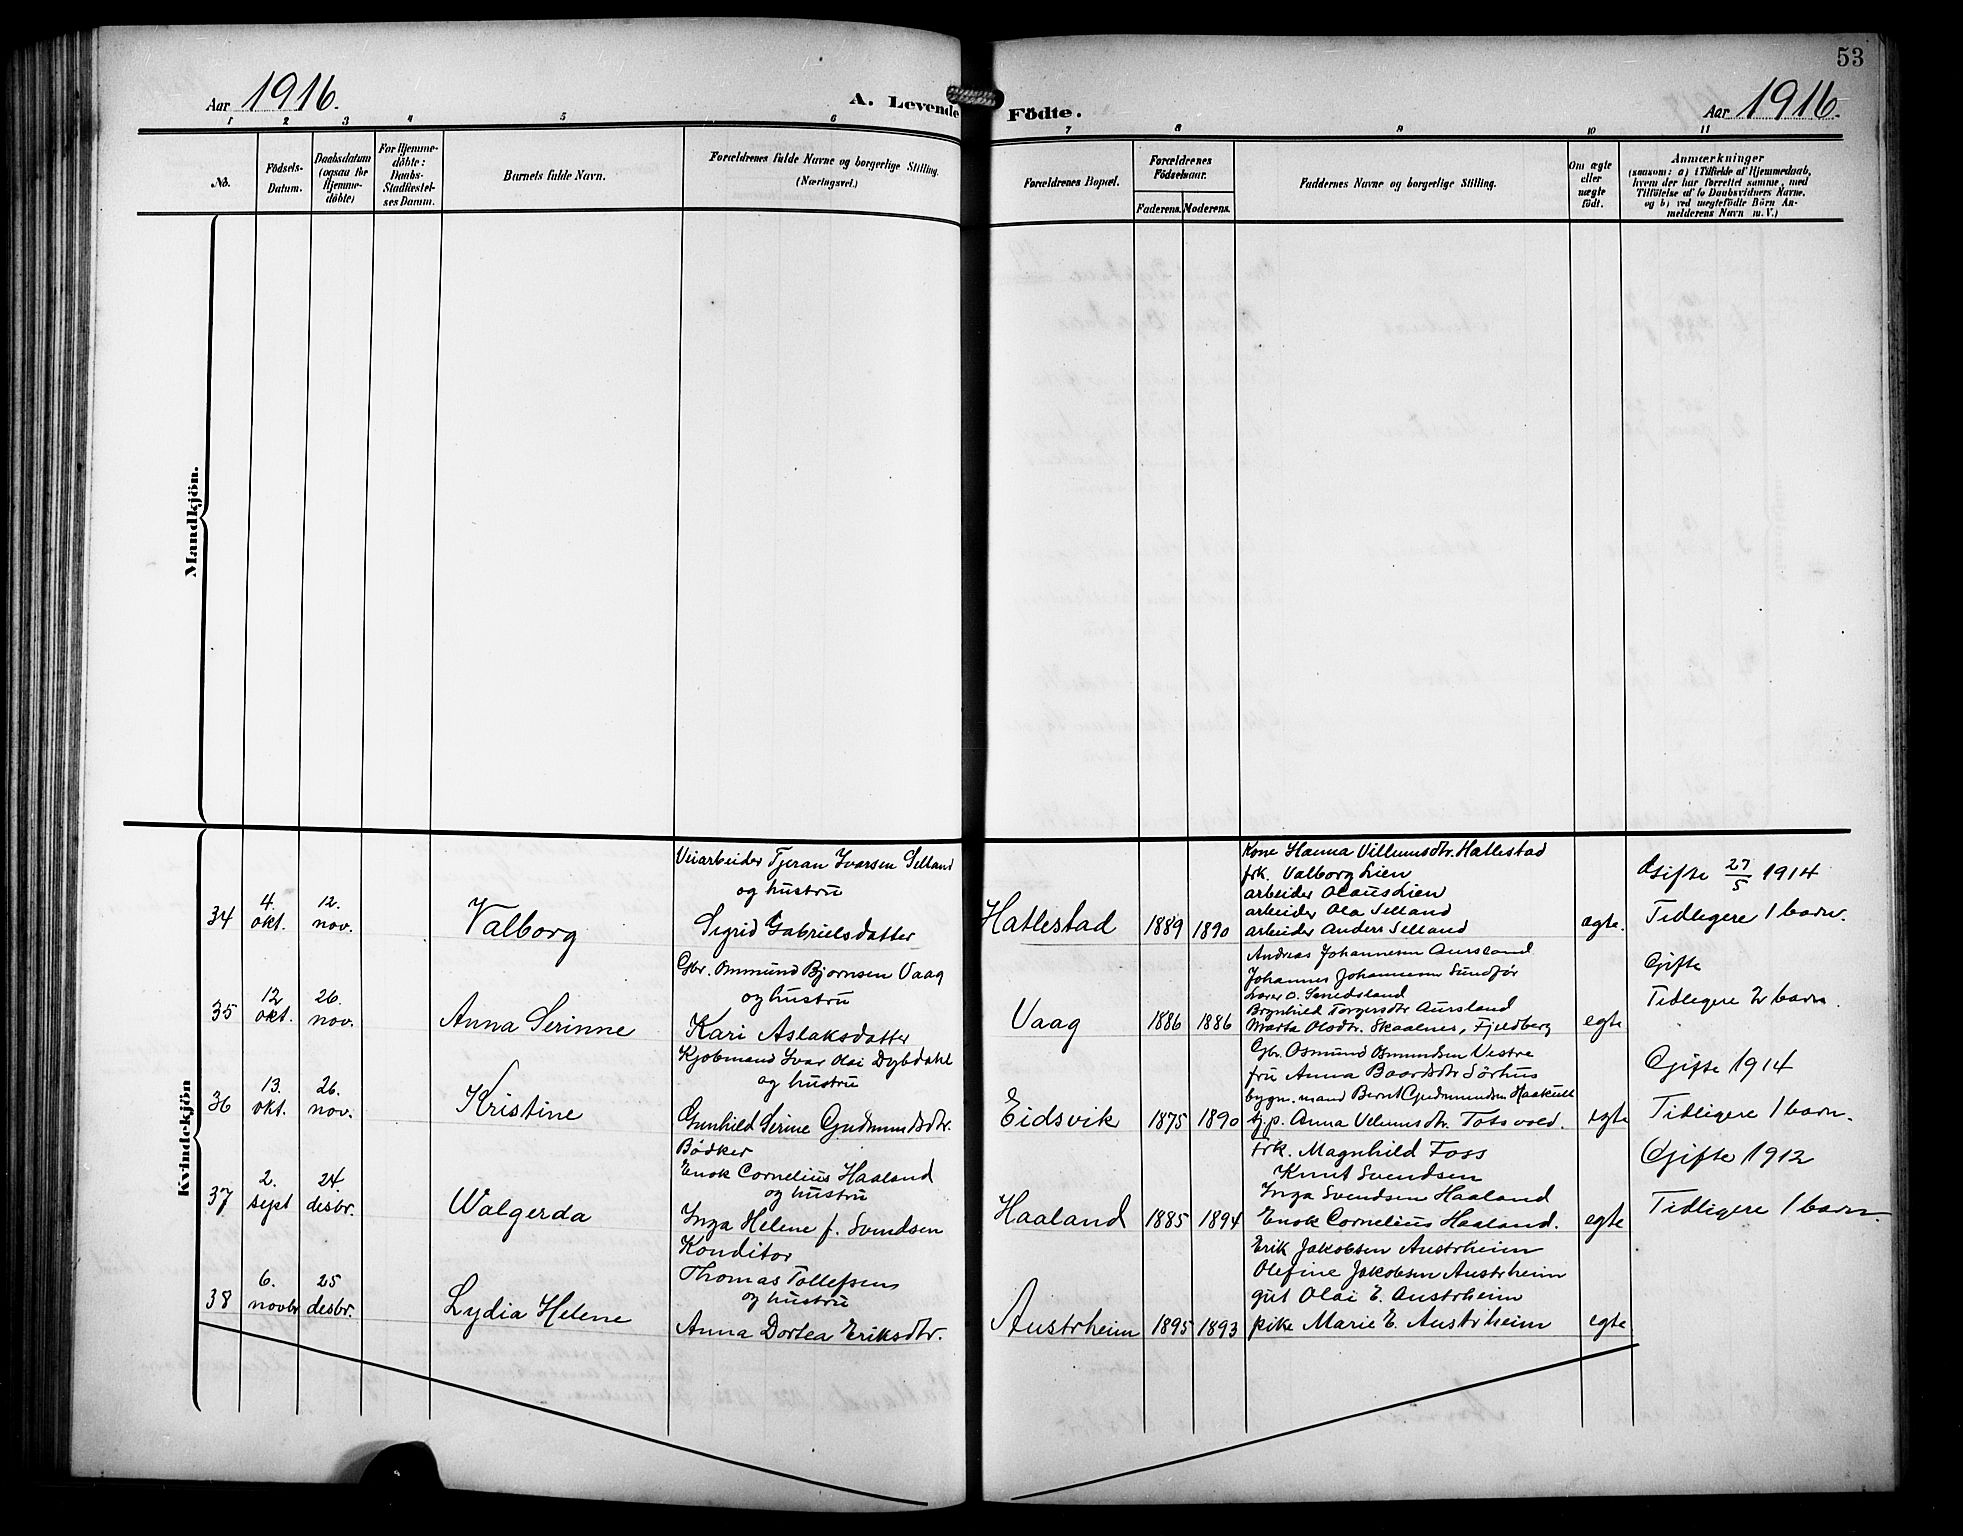 53
Aar 1916.
A. Levende Födte.
Aar 1916.
1 2 3 4 5 6 7 8 9 10 11
No.
Födsels-
Datum.
Daabsdatum
(ogsaa for
Hjemme-
døbte)
For Hjemme-
døbte:
Daabs-
Stadfæstel-
ses Datum.
Barnets fulde Navn.
Forældrenes fulde Navne og borgerlige Stilling.
(Næringsvei.)
Forældrenes Bopæl.
Forældrenes
Födselsaar.
Faderens. Moderens.
Faddernes Navne og borgerlige Stilling.
Om ægte
eller
uægte
født.
Anmærkninger
(saasom: a) i Tilfælde af Hjemmedaab,
hvem der har forrettet samme, med
Tilföielse af to Daabsvidners Navne.
og b) ved uægtefödte Börn An-
melderens Navn m. V.)
Mandkjön.
Kvindekjön
34
4.
okt.
12.
nov.
Valborg
Veiarbeider Tjeran Ivarsen Selland
og hustru
Sigrid Gabrielsdatter
Hatlestad
1889 1890
Kone Hanna Villumsdtr. Hatlestad
frk. Valborg Lien
arbeider Olaus Lien
arbeider Ola Selland
arbeider Anders Selland
ægte.
Gifte 27/5 1914
Tidligere 1 barn.
35
12
okt.
26.
nov.
Anna Serinne
Gbr. Ommund Bjørnsen Vaag
og hustru
Kari Aslaksdatter
Vaag
1886 1886
Andreas Johannesen Aursland
Johannes Johannesen Sundfør
Lærer O. Smedsland
Brynhild Torgersdtr Aursland
Marta Olsdtr. Skaalnes, Fjeldberg
egte
Gifte
Tidligere 2 barn.
36
13.
okt.
26.
nov.
Kristine
Kjøbmand Ivar Olai Dybdahl
og hustru
Gunhild Serine Gudmundsdtr.
Eidsvik
1875 1890
Gbr. Osmund Osmundsen Vestre
fru Anna Baardsdtr Sørhus
bygn. mand Bernt Gudmundsen Haakull
tj.p. Anna Velumsdtr. Totsvold.
egte
Gifte 1914
Tidligere 1 barn.
37
2.
sept
24
desbr.
Walgerda
Bødker
Enok Cornelius Haaland
og hustru
Inga Helene f. Svendsen
Haaland
1885 1894
Frk. Magnhild Foss
Knut Svendsen
Inga Svendsen Haaland
Enok Cornelius Haaland.
egte
Gifte 1912
Tidligere 1 barn.
38
6.
novbr
25
desbr.
Lydia Helene
Konditor
Thomas Tollefsen
og hustru
Anna Dortea Eriksdtr.
Austrheim
1895 1893
Erik Jakobsen Austrheim
Olefine Jakobsen Austrheim
gut Olai E. Austrheim
pike Marie E. Austrheim
egte